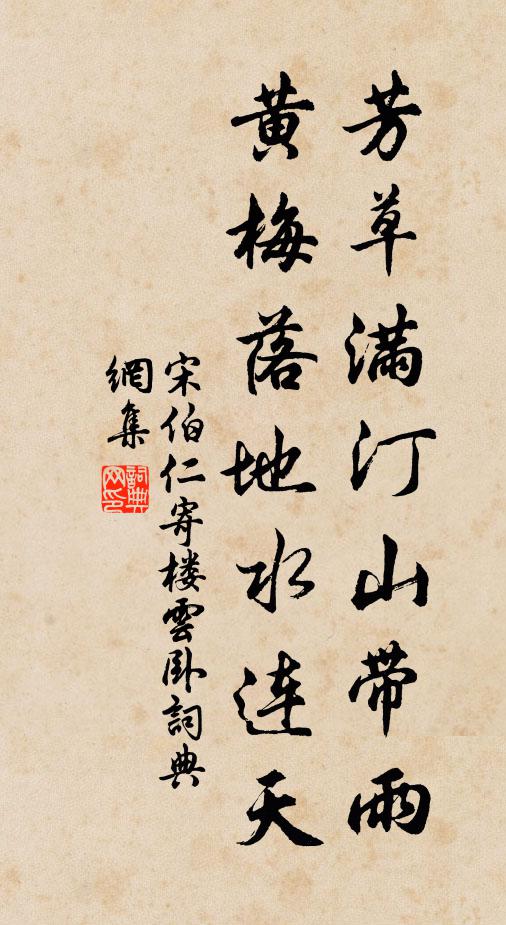 芳草满汀山带雨
黄梅落地水连天
宋伯仁寄楼雲卧詞典
網集
詞典网印